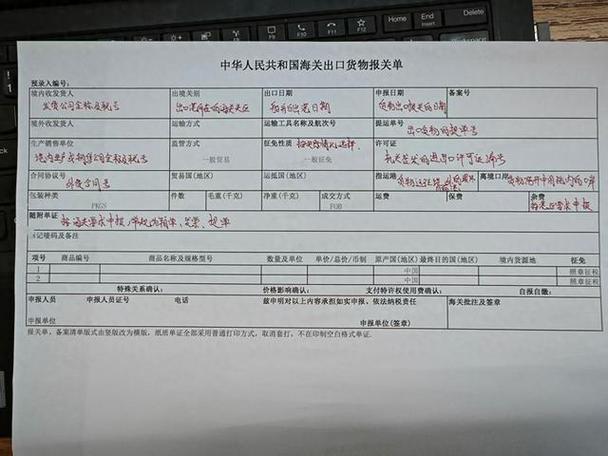 Home
End
Insert
Delete
中华人民共和国海关出口货物报关单
预录入编号:
境内收发货人 出境关别 出口日期 申报日期 备案号
发货公司全称及税号 出口港所在的海关关区 货物出口报关的日期
境外收发货人 运输方式 运输工具名称及航次号 提运单号
出口货物的提单号
生产销售单位 监管方式 征免性质 按照实际情况选择 许可证
境内生产或销售公司全称及税号 一般贸易 一般征免
合同协议号 贸易国(地区) 运抵国(地区) 指运港 离境口岸
外贸合同号
包装种类 件数 毛重(千克) 净重(千克) 成交方式 运费 保费 杂费
PKGS FOB
随附单证
按海关要求申报, 发票、提单
标记唛码及备注
项号 商品编号 商品名称及规格型号 数量及单位 单价/总价/币制 原产国(地区) 最终目的国(地区) 境内货源地 征免
1 中国 照章征税
2 中国 照章征税
特殊关系确认: 价格影响确认: 支付特许权使用费确认: 自报自缴:
申报人员 申报人员证号 电话 兹申明对以上内容承担如实申报、依法纳税责任 海关批注及签章
申报单位 申报单位(签章)
报关单、备案清单版式由竖版改为横版, 纸质单证全部采用普通打印方式, 取消套打, 不在印制空白格式单证.